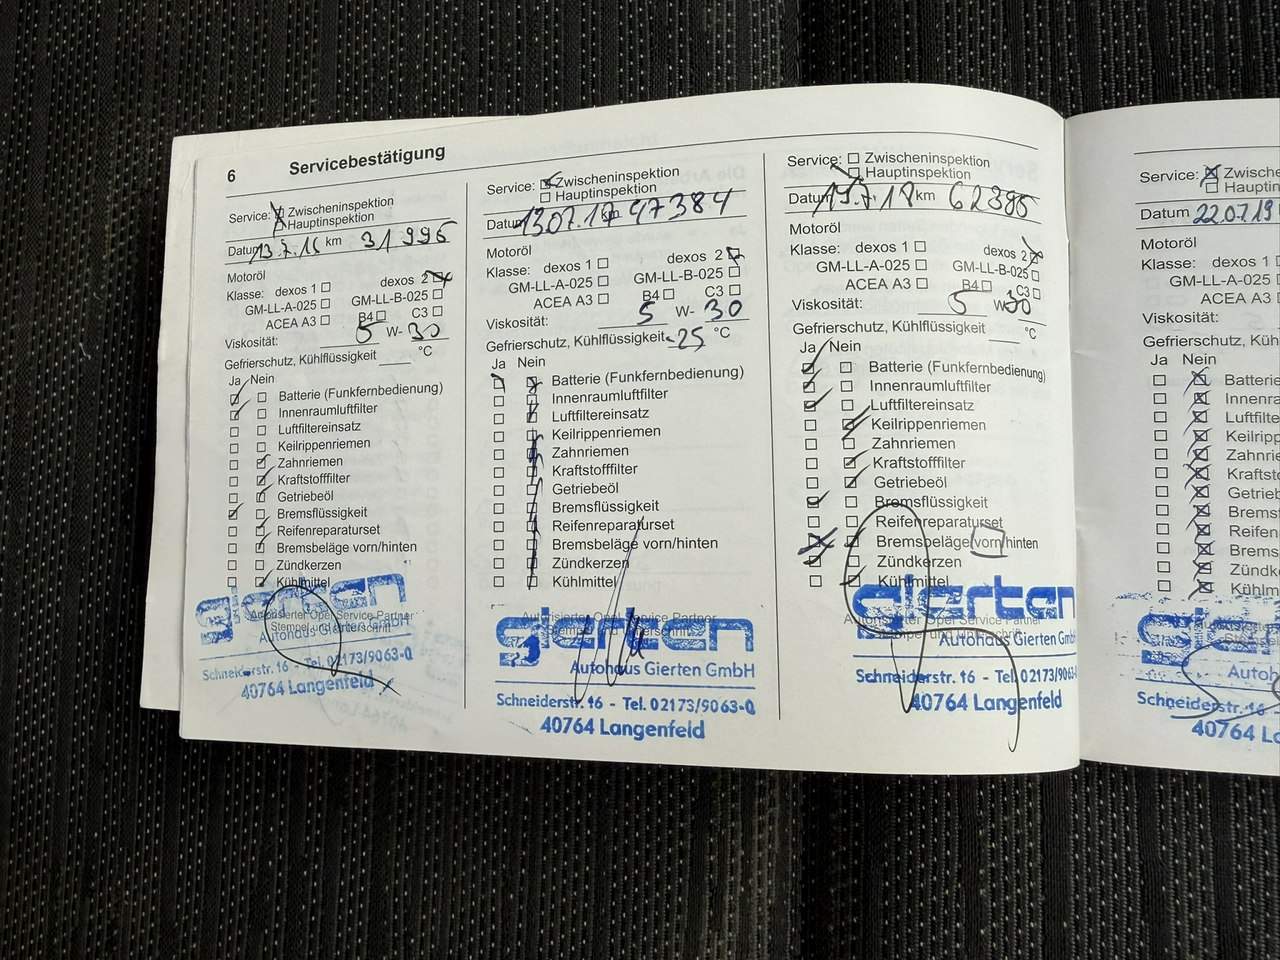 6 Servicebestätigung
Service: Zwischeninspektion
Hauptinspektion
Datum 13.7.16 km 31996
Motoröl
Klasse: dexos 1 dexos 2
GM-LL-A-025 GM-LL-B-025
ACEA A3 B4 C3
Viskosität: 5 W- 30
Gefrierschutz, Kühlflüssigkeit °C
Ja Nein
Batterie (Funkfernbedienung)
Innenraumluftfilter
Luftfiltereinsatz
Keilrippenriemen
Zahnriemen
Kraftstofffilter
Getriebeöl
Bremsflüssigkeit
Reifenreparaturset
Bremsbeläge vorn/hinten
Zündkerzen
Kühlmittel
gierten
Autorisierter Opel Service Partner
Stempel und Unterschrift
Autohaus Gierten GmbH
Schneiderstr. 16 - Tel. 02173/9063-0
40764 Langenfeld
Service: Zwischeninspektion
Hauptinspektion
Datum 13.07.17 km 47384
Motoröl
Klasse: dexos 1 dexos 2
GM-LL-A-025 GM-LL-B-025
ACEA A3 B4 C3
Viskosität: 5 W- 30
Gefrierschutz, Kühlflüssigkeit -25 °C
Ja Nein
Batterie (Funkfernbedienung)
Innenraumluftfilter
Luftfiltereinsatz
Keilrippenriemen
Zahnriemen
Kraftstofffilter
Getriebeöl
Bremsflüssigkeit
Reifenreparaturset
Bremsbeläge vorn/hinten
Zündkerzen
Kühlmittel
gierten
Autorisierter Opel Service Partner
Stempel und Unterschrift
Autohaus Gierten GmbH
Schneiderstr. 16 - Tel. 02173/9063-0
40764 Langenfeld
Service: Zwischeninspektion
Hauptinspektion
Datum 19.7.18 km 62385
Motoröl
Klasse: dexos 1 dexos 2
GM-LL-A-025 GM-LL-B-025
ACEA A3 B4 C3
Viskosität: 5 W-30
Gefrierschutz, Kühlflüssigkeit °C
Ja Nein
Batterie (Funkfernbedienung)
Innenraumluftfilter
Luftfiltereinsatz
Keilrippenriemen
Zahnriemen
Kraftstofffilter
Getriebeöl
Bremsflüssigkeit
Reifenreparaturset
Bremsbeläge vorn/hinten
Zündkerzen
Kühlmittel
gierten
Autorisierter Opel Service Partner
Stempel und Unterschrift
Autohaus Gierten GmbH
Schneiderstr. 16 - Tel. 02173/9063-0
40764 Langenfeld
Service: Zwische
Hauptin
Datum 22.07.19
Motoröl
Klasse: dexos 1
GM-LL-A-025
ACEA A3
Viskosität:
Gefrierschutz, Kühlflüssi
Ja Nein
Batterie
Innenra
Luftfilte
Keilripp
Zahnrie
Kraftsto
Getrieb
Bremsf
Reifen
Brems
Zündk
Kühlm
Autoh
Schneiderstr. 16
40764 L